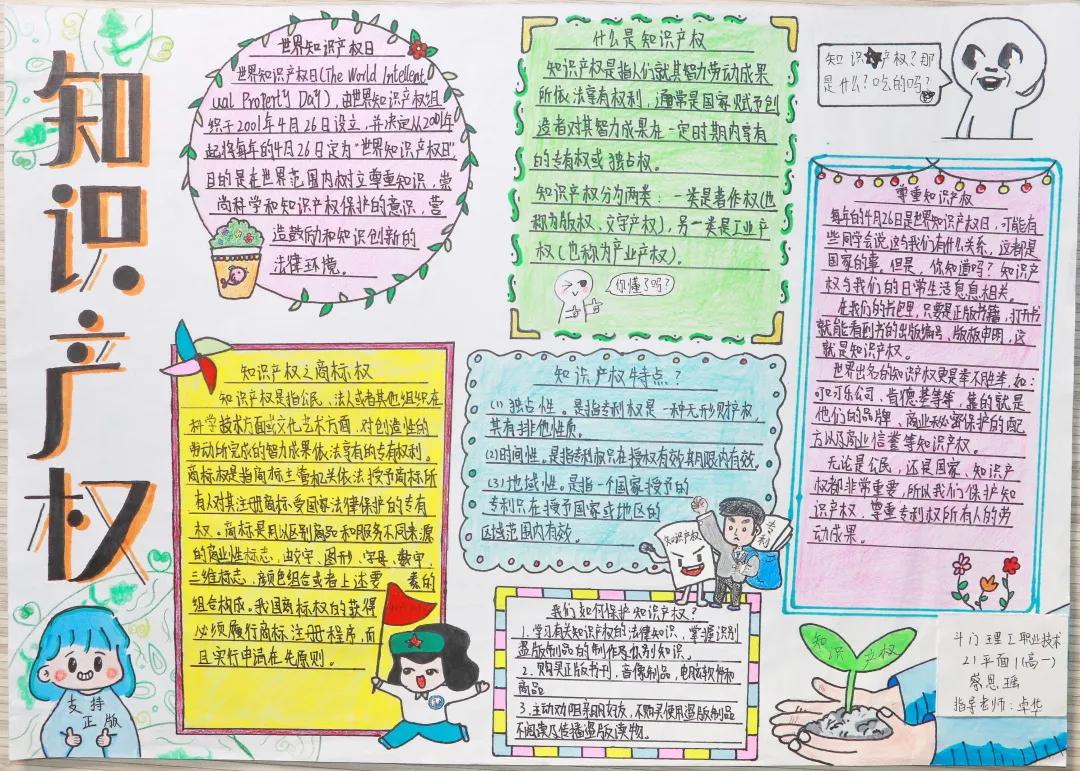 知识产权
世界知识产权日
世界知识产权日(The World Intellect
ual Property Day),由世界知识产权组
织于2001年4月26日设立,并决定从2001年
起将每年的4月26日定为“世界知识产权日”
目的是在世界范围内树立尊重知识,崇
尚科学和知识产权保护的意识,营
造鼓励和知识创新的
法律环境。
什么是知识产权
知识产权是指人们就其智力劳动成果
所依法享有权利,通常是国家赋予创
造者对其智力成果在一定时期内享有
的专有权或独占权。
知识产权分为两类:一类是著作权(也
称为版权、文学产权),另一类是工业产
权(也称为产业产权)。
你懂了吗?
知识产权?那
是什么?吃的吗?
尊重知识产权
每年的4月26日是世界知识产权日,可能有
些同学会说这与我们有什么关系,这都是
国家的事,但是,你知道吗?知识产
权与我们的日常生活息息相关。
在我们的书包里,只要是正版书籍,打开书
就能看到书的出版编号、版权申明,这
就是知识产权。
世界出名的知识产权更是举不胜枚,如:
可口可乐公司,肯德基等等,靠的就是
他们的品牌,商业秘密保护的配
方以及商业信誉等知识产权。
无论是公民,还是国家,知识产
权都非常重要,所以我们保护知
识产权,尊重专利权所有人的劳
动成果。
知识产权之商标权
知识产权是指公民、法人或者其他组织在
科学技术方面或文化艺术方面,对创造性的
劳动所完成的智力成果依法享有的专有权利。
商标权是指商标主管机关依法授予商标所
有人对其注册商标受国家法律保护的专有
权。商标是用以区别商品和服务不同来源
的商业性标志,由文字、图形、字母、数字、
三维标志、颜色组合或者上述要素的
组合构成。我国商标权的获得
必须履行商标注册程序,而
且实行申请在先原则。
知识产权特点?
(1)独占性。是指专利权是一种无形财产权
具有排他性质。
(2)时间性。是指专利权只在授权有效期限内有效。
(3)地域性。是指一个国家授予的
专利只在授予国家或地区的
区域范围内有效。
知识产权
专利
我们如何保护知识产权?
1.学习有关知识产权的法律知识、掌握识别
盗版制品的制作及似别知识。
2.购买正版书刊,音像制品,电脑软件和
商品
3.主动劝阻亲朋好友,不购买使用盗版制品
不阅读及传播盗版读物。
支持
正版
知识产权
斗门理工职业技术
21平面1(高一)
蔡思瑶
指导老师:卓华